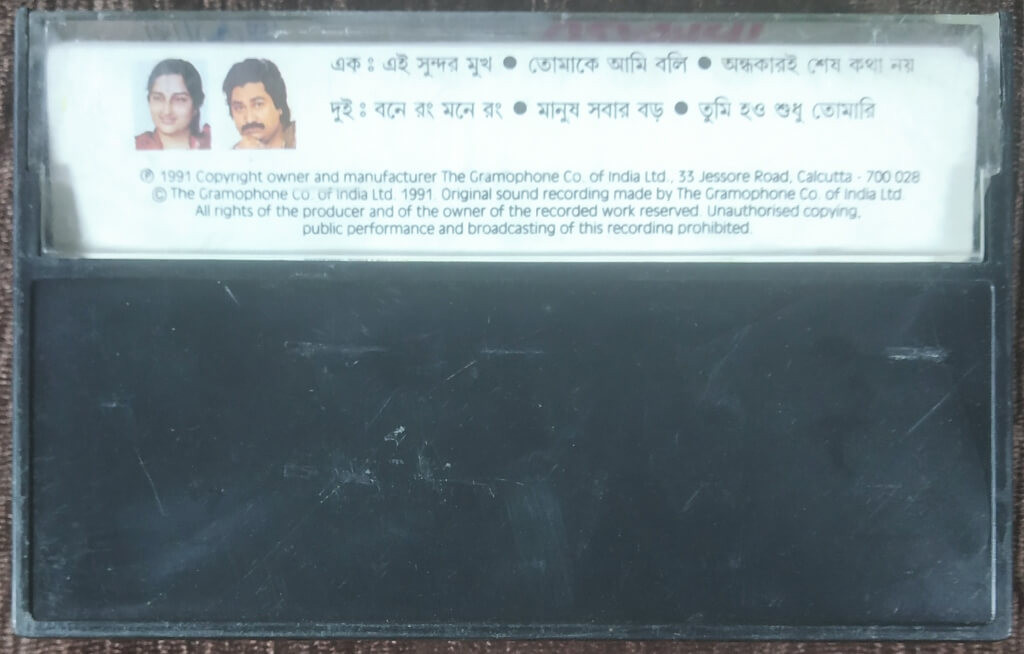 এক : এই সুন্দর মুখ ● তোমাকে আমি বলি ● অন্ধকারই শেষ কথা নয়
দুই : বনে রং মনে রং ● মানুষ সবার বড় ● তুমি হও শুধু তোমারি
℗ 1991 Copyright owner and manufacturer The Gramophone Co. of India Ltd., 33 Jessore Road, Calcutta - 700 028
© The Gramophone Co. of India Ltd. 1991. Original sound recording made by The Gramophone Co. of India Ltd.
All rights of the producer and of the owner of the recorded work reserved. Unauthorised copying,
public performance and broadcasting of this recording prohibited.